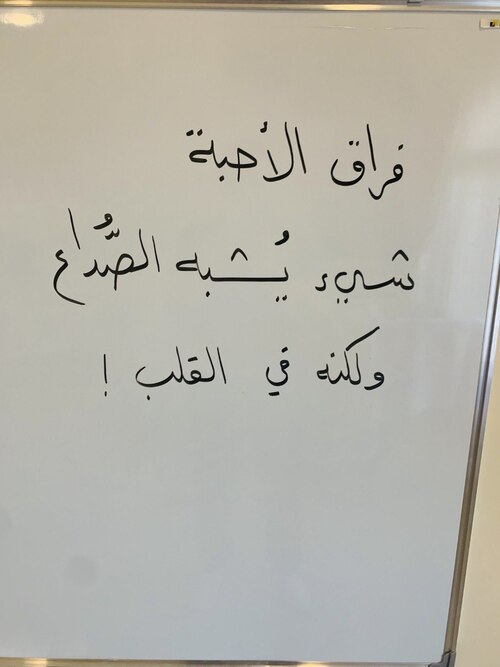 فراق الأحبة
شيء يُشبه الصُّداع
ولكنه في القلب !